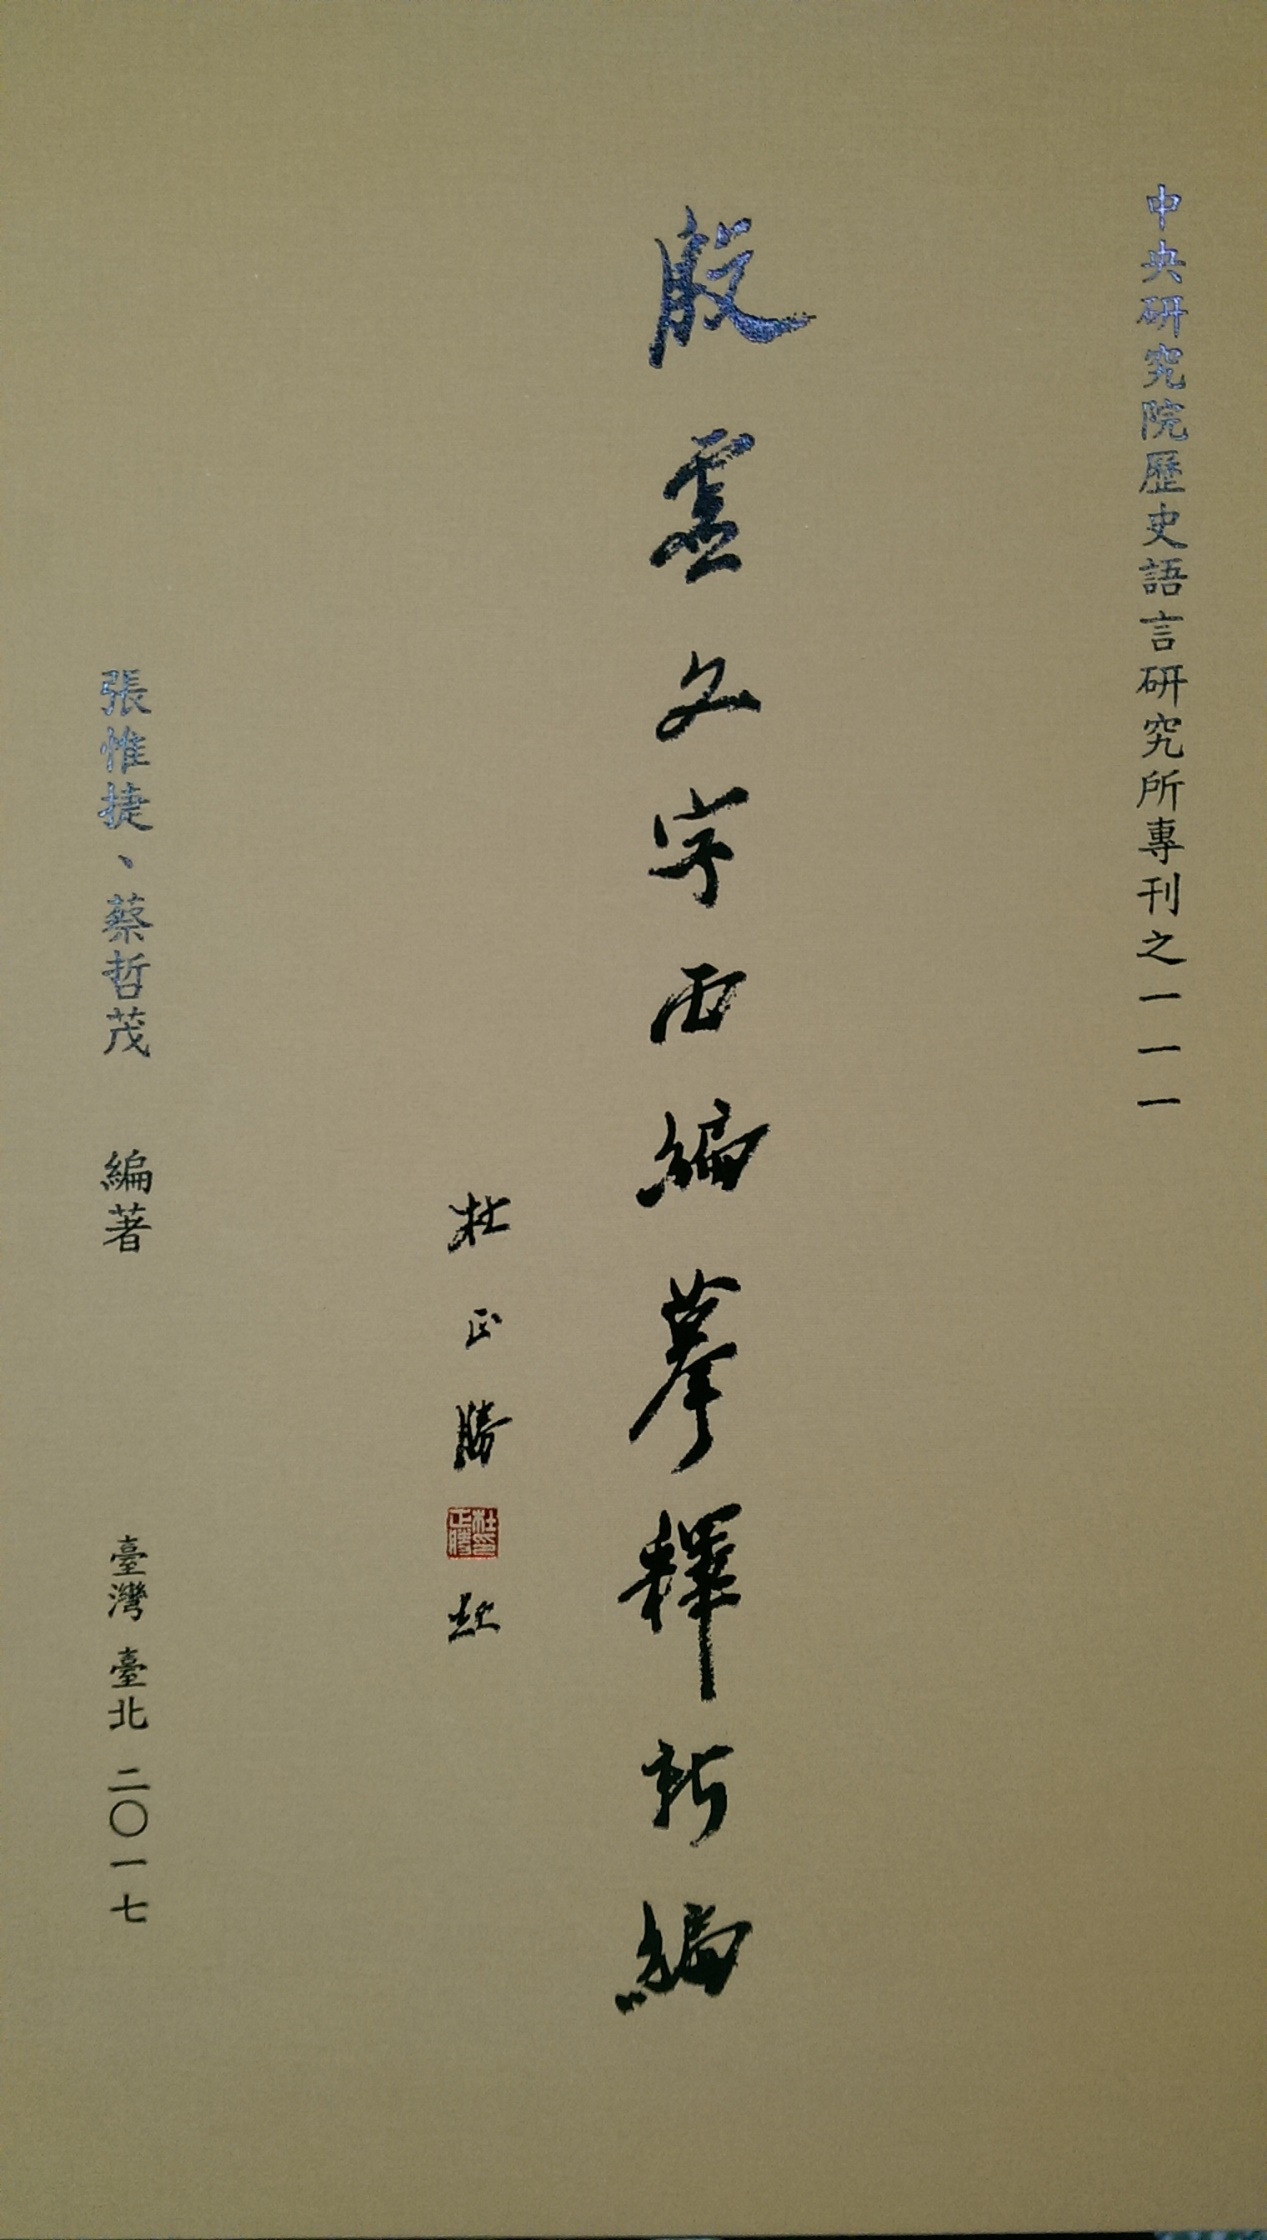 中央研究院歷史語言研究所專刊之一一一
殷虛文字丙編摹釋新編
杜正勝
杜正勝印
題
張惟捷、蔡哲茂 編著
臺灣 臺北 二〇一七